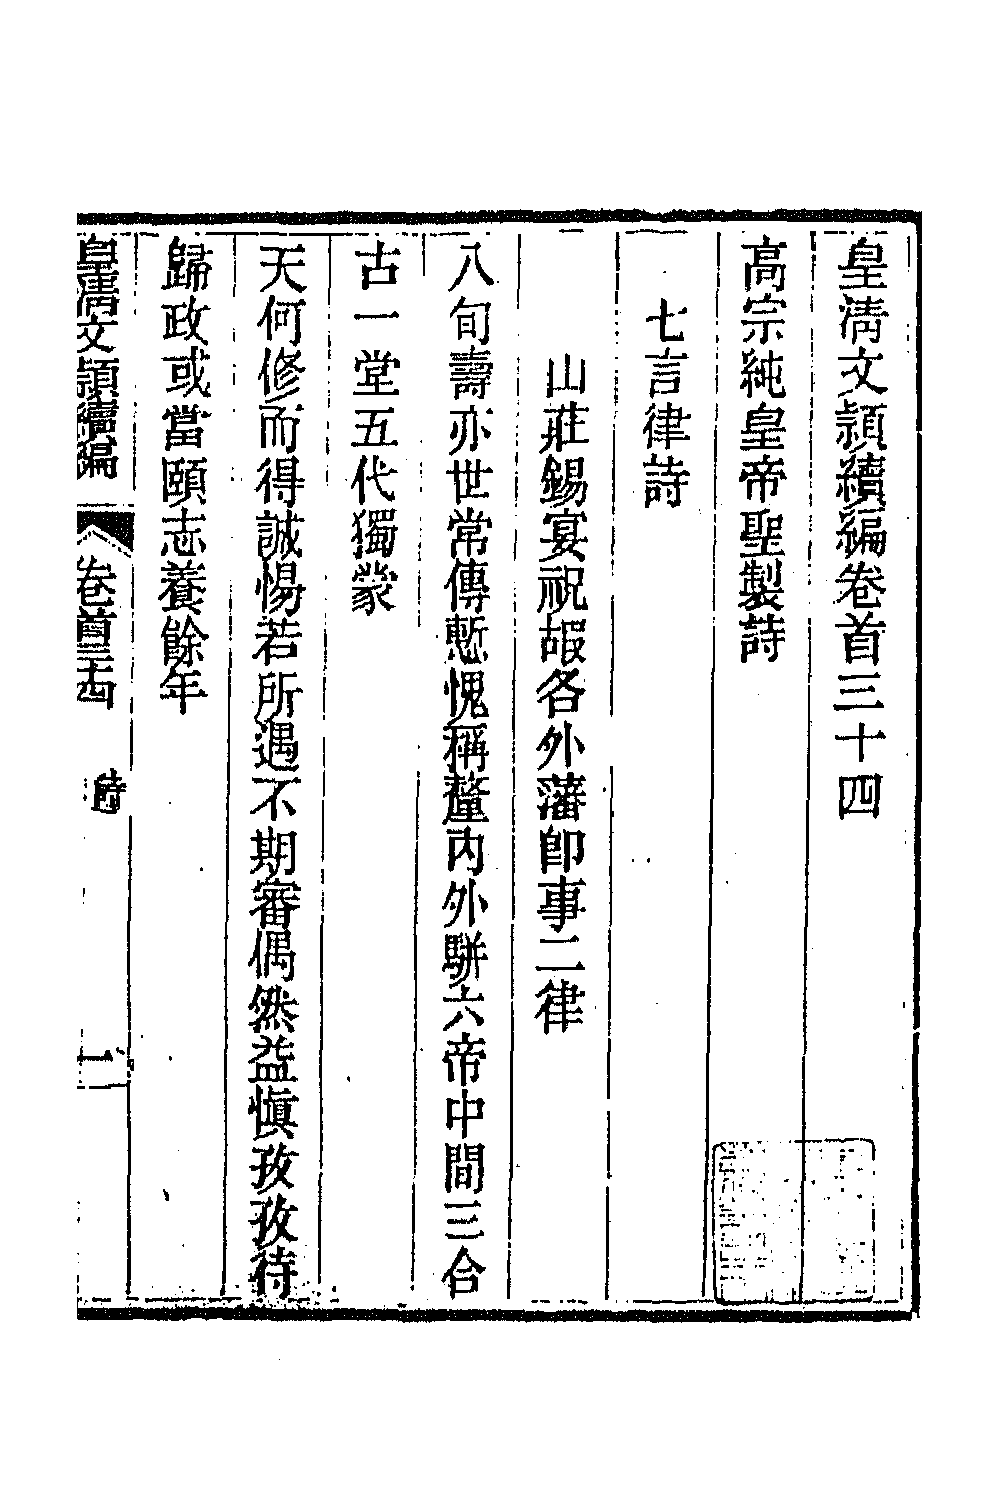 皇清文頴續編卷首三十四
高宗純皇帝聖製詩
七言律詩
山莊錫宴祝嘏各外藩卽事二律
八旬壽亦世常傳慙愧稱釐內外駢六帝中間三合
古一堂五代獨蒙
天何修而得誠惕若所遇不期審偶然益愼孜孜待
歸政或當頤志養餘年
皇淸文頴續編
卷首三十四
詩
一